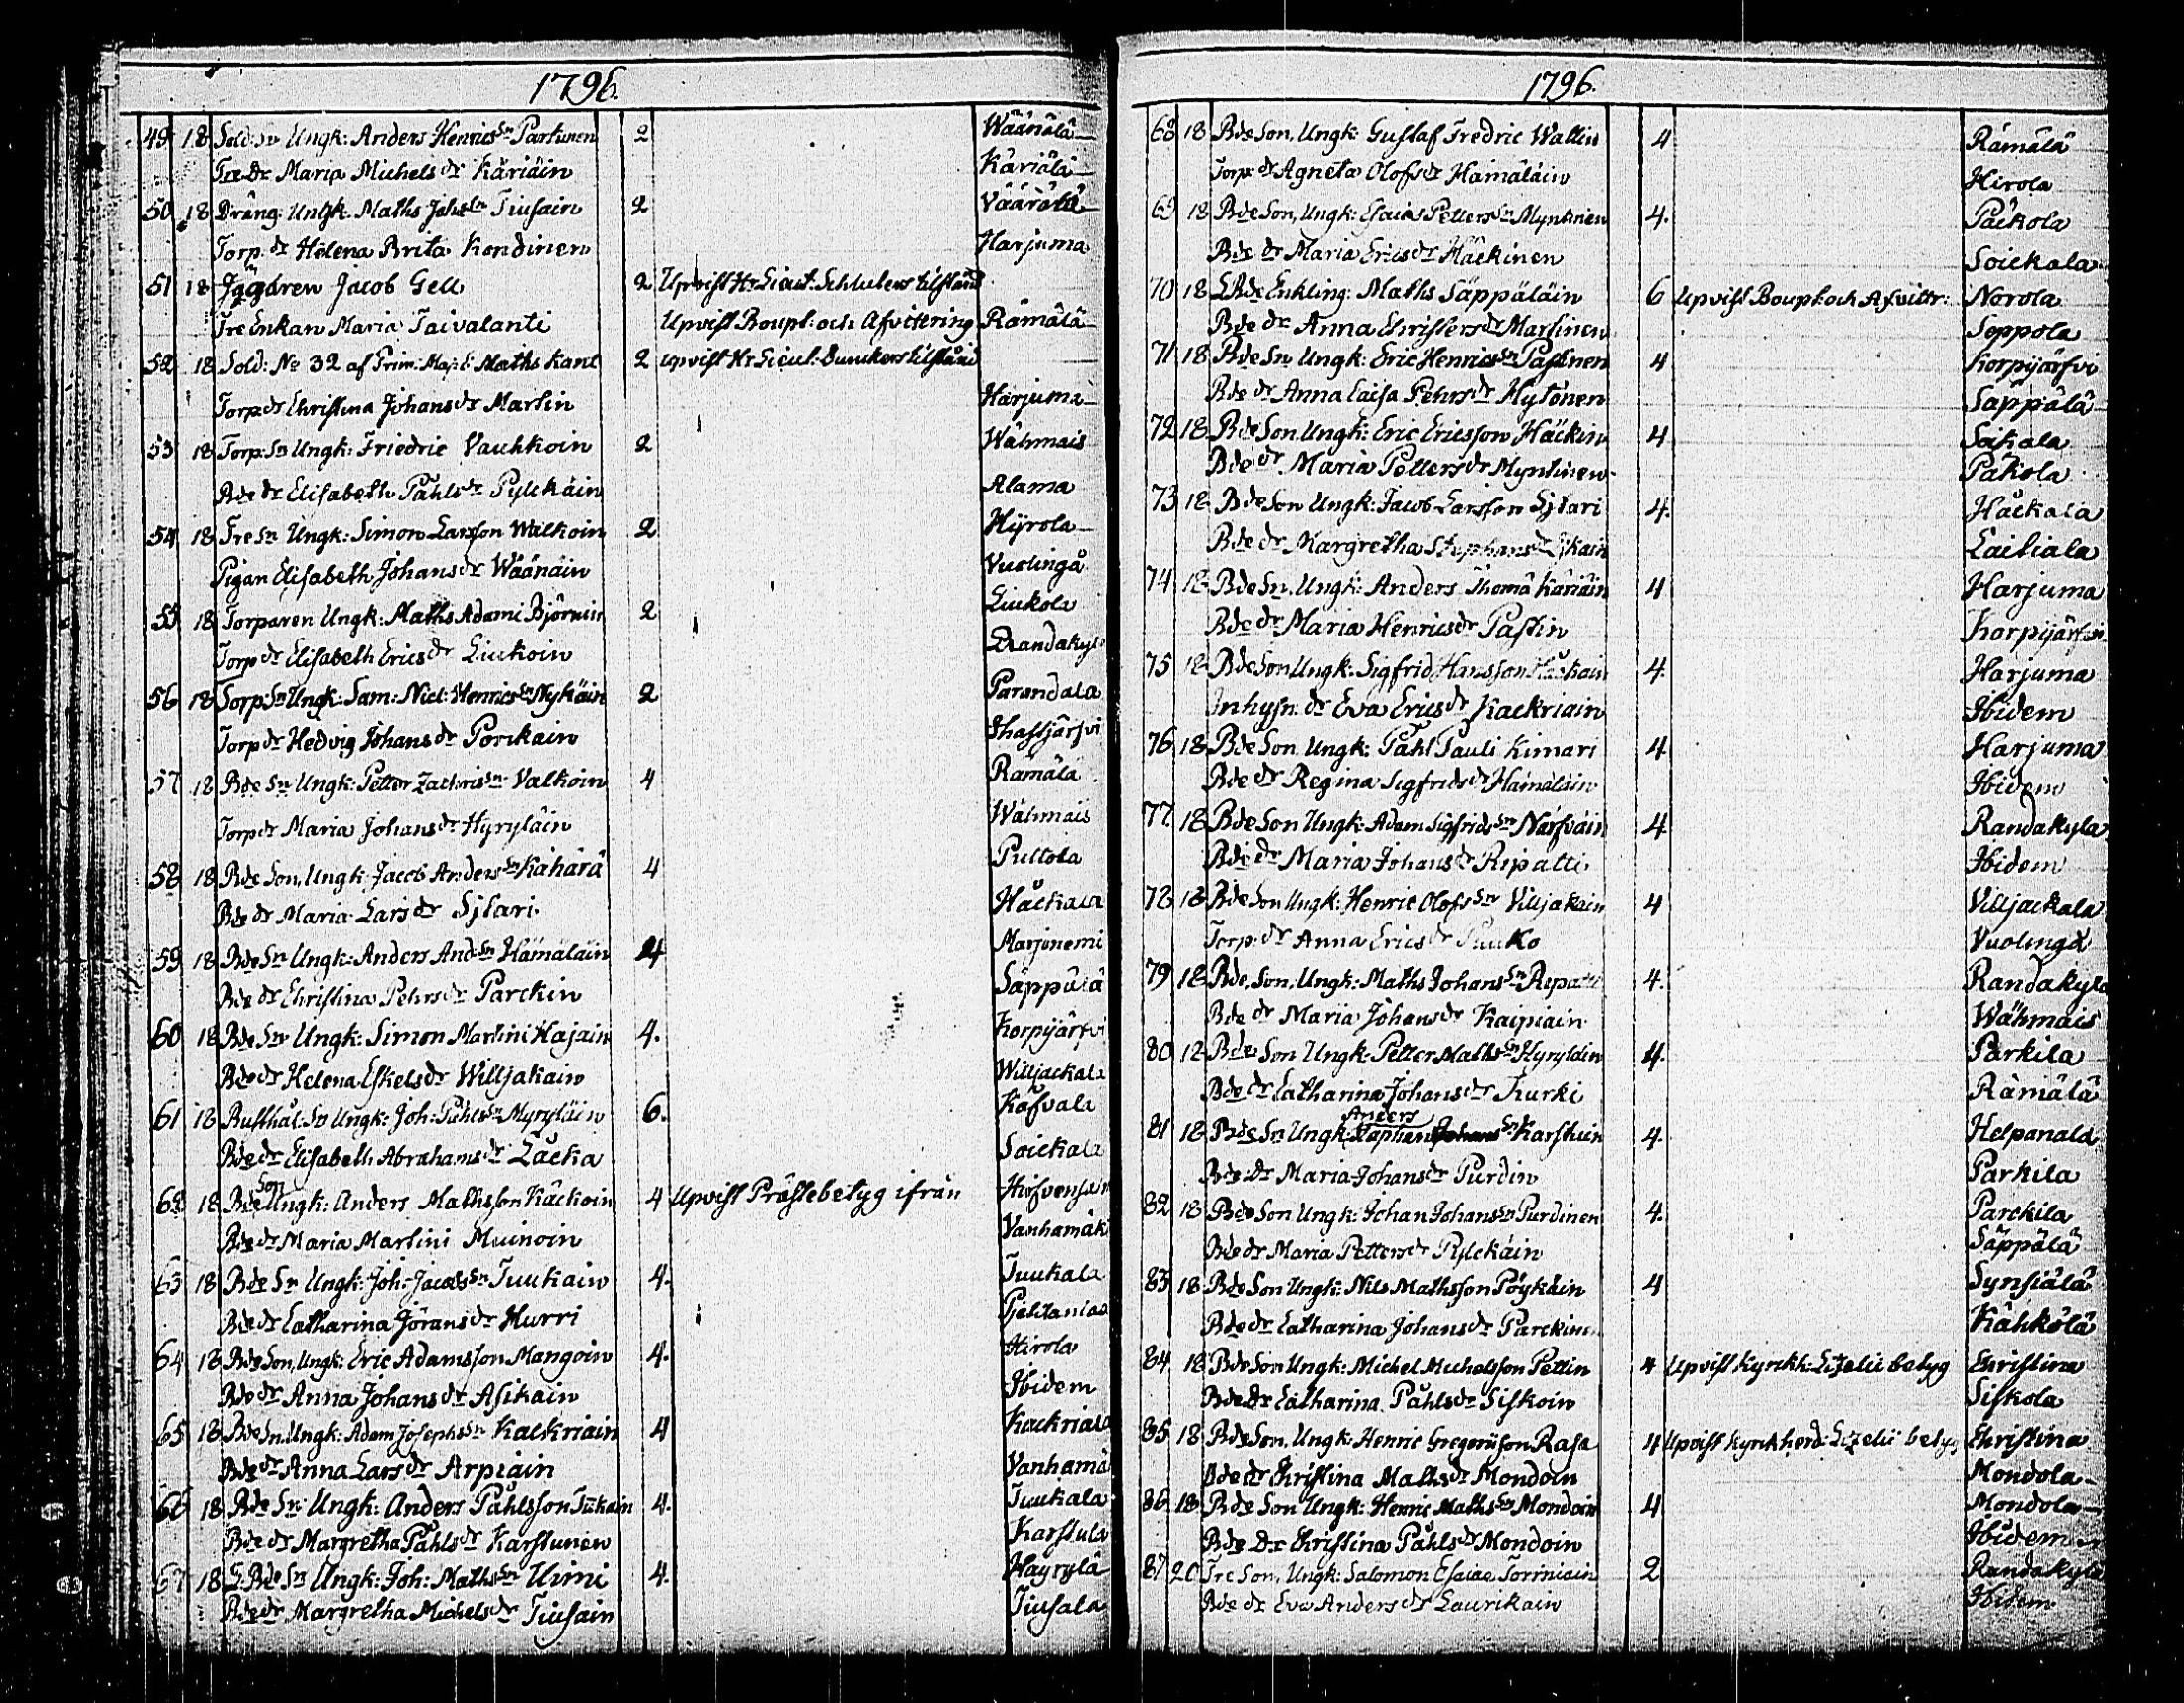 1796.
49 18 Sold: Sn Ungk: Anders Henrics Sn Partunen 2 Wäänälä
Tre Dr Maria Michels dr Käriäin Käriälä
50 18 Dräng: Ungk. Maths Johs Sn Tiusain 2 Väärälä
Torp. dr Helena Brita Kondinen Harjuma
51 18 Jägaren Jacob Gell 2 Upvist Hr Lieut: Schluters tilstånd
Tre Enkan Maria Taivalanti Upvist Boupt: och Afvittring Rämälä
52 18 Sold: No 32 af Prim: Maj: C: Maths Kant 2 upvist Hr Lieut: Bunckers tilstånd
Torp dr Christina Johans dr Martin Harjuma
53 18 Torp: Sn Ungk: Friedric Vauhkoin 2 Wähmais
Bde dr Elisabeth Påhls dr Pylckäin Alama
54 18 Tre Sn Ungk: Simon Larsson Walkoin 2 Hyrola
Pigan Elisabeth Johans dr Wäänäin Vuolingå
55 18 Torparen Ungk: Maths Adami Björnin 2 Liukola
Torp dr Elisabeth Erics dr Liukoin Randakylä
56 18 Torp: Sn Ungk: Sam: Nicl: Henrics Sn Nykäin 2 Parandala
Torp dr Hedvig Johans dr Porckain Ihastjärfvi
57 18 Bde Sn Ungk: Petter Zachris Sn Valkoin 4 Rämälä
Torp dr Maria Johans dr Hyryläin Wähmais
58 18 Bde Son, Ungk: Jacob Anders Sn Kähärä 4 Pultola
Bde dr Maria Lars dr Sjtari Håckala
59 18 Bde Sn Ungk: Anders And: Sn Hämäläin 4 Marjonemi
Bde dr Christina Pehrs dr Parckin Säppälä
60 18 Bde Sn Ungk: Simon Martini Hajain 4. Korpijärfvi
Bde dr Helena Eskels dr Willjakain Willjackala
61 18 Rusthål: Sn Ungk: Joh: Påhls Sn Myryläin 6. Kåfvala
Bde dr Elisabeth Abrahams dr Låcka Soickala
62 18 Bde Son Ungk: Anders Mathsson Käckoin 4 Upvist Prästebetyg ifrån Hirfvensam
Bde dr Maria Martini Muinoin Vanhamäki
63 18 Bde Sn Ungk: Joh: Jacobs Sn Tuukain 4. Tuukala
Bde dr Catharina Jörans dr Hurri
64 18 Bde Son, Ungk: Eric Adamsson Mangoin 4. Hirola
Bde dr Anna Johans dr Asikain Ibidem
65 18 Bde Sn, Ungk: Adam Josephs Sn Kackriain 4 Kackriala
Bde dr Anna Lars dr Arpiain Vanhamä
66 18 Bde Sn Ungk: Anders Påhlsson Tukain 4. Tuukala
Bde dr Margretha Påhls dr Karstunen Karstula
67 18 L: Bde Sn Ungk: Joh: Maths Sn Uimi 4. Häyrylä
Bde dr Margretha Michels dr Tiusain Tiusala
1796.
68 18 Bde Son, Ungk: Gustaf Fredric Wallin 4 Rämälä
Torp dr Agneta Olofs dr Hämäläin Hirola
69 18 Bde Son, Ungk: Esaias Petters Sn Myntinen 4. Päckola
Bde dr Maria Erics dr Häckinen Soickala
70 18 L Bde Enkling: Maths Säppäläin 6 Upvist Boupt och Afvittr: Norola
Bde dr Anna Christers dr Martinen Seppola
71 18 Bde Sn Ungk: Eric Henrics Sn Pastinen 4 Korpijärfvi
Bde dr Anna Caisa Pehrs dr Hytönen Säppälä
72 18 Bde Son, Ungk: Eric Ericsson Häckin 4 Soikala
Bde dr Maria Petters dr Myntinen Päkola
73 18 Bde Son Ungk: Jacob Larsson Sjtari 4. Håckala
Bde dr Margretha Stephans dr Laitiala
74 18 Bde Sn. Ungk: Anders Thomä Käriäin 4 Harjuma
Bde dr Maria Henrics dr Pastin Korpijärfvi
75 18 Bde Son Ungk: Sigfrid Hansson Häckain 4. Harjuma
Inhysn: dr Eva Erics dr Kackriain Ibidem
76 18 Bde Son, Ungk: Påhl Pauli Kimari 4 Harjuma
Bde dr Regina Sigfrids dr Hämäläin Ibidem
77 18 Bde Son Ungk: Adam Sigfrids Sn Narfväin 4 Randakylä
Bde dr Maria Johans dr Ripatti Ibidem
78 18 Bde Son Ungk: Henric Olofs Sn Villjakain 4 Villjackala
Torp: dr Anna Erics dr Puuko Vuolingå
79 18 Bde, Son, Ungk: Maths Johans Sn Ripatti 4. Randakylä
Bde dr Maria Johans dr Kaipiain Wähmais
80 18 Bde Son Ungk: Petter Maths Sn Hyryläin 4. Parkila
Bde dr Catharina Johans dr Turki Rämälä
81 18 Bde Sn Ungk: Anders Karstuin 4. Helpanala
Bde: Dr Maria Johans dr Purdin Parkila
82 18 Bde Son Ungk: Johan Johans Sn Purdinen 4. Parckila
Bde dr Maria Petters dr Pylckäin Säppälä
83 18 Bde Son Ungk: Nils Mathsson Pöykäin 4 Synsiälä
Bde dr Catharina Johans dr Parckinen Kähkölä
84 18 Bde Son Ungk: Michel Michelsson Pettin 4 Upvist Kyrckh: Lizelii betyg Christina
Bde Dr Catharina Påhls dr Siskoin Siskola
85 18 Bde Son, Ungk: Henric Gregorisson Rasa 4 Upvist Kyrckherd: Lizelii betyg Christina
Bde dr Christina Maths dr Mondoin Mondola
86 18 Bde Son Ungk: Henric Maths Sn Mondoin 4 Mondola
Bde Dr Christina Påhls dr Mondoin Ibidem
87 20 Tre Son, Ungk: Salomon Esaiae Torniain 2 Randakylä
Bde dr Eva Anders dr Laurikain Ibidem